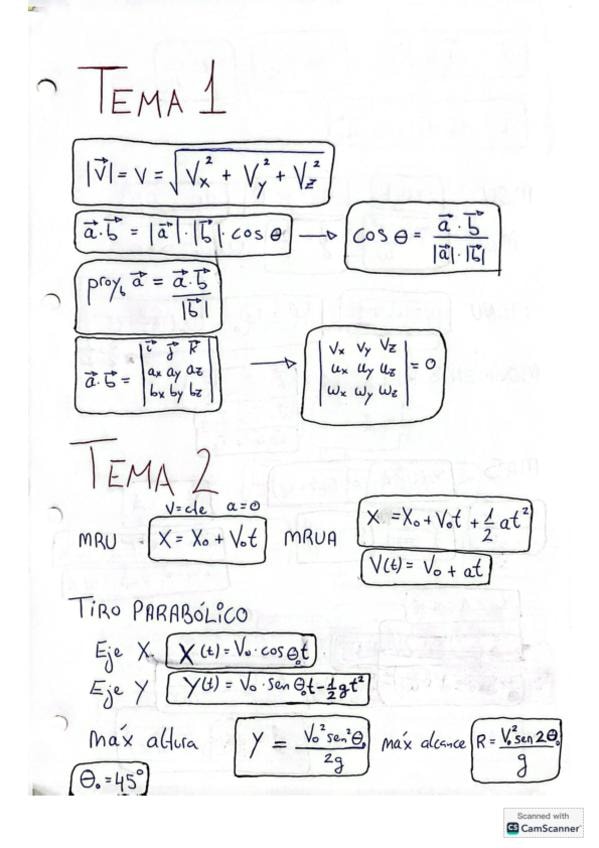 TEMA 1
|V⃗| = V = √(Vx² + Vy² + Vz²)
a⃗·b⃗ = |a⃗|·|b⃗|·cos θ → cos θ = a⃗·b⃗ / |a⃗|·|b⃗|
proy_b a⃗ = a⃗·b⃗ / |b⃗|
a⃗·b⃗ = | i⃗ j⃗ k⃗ | → | Vx Vy Vz | = 0
| ax ay az | | ux uy uz |
| bx by bz | | wx wy wz |
TEMA 2
V=cte a=0
MRU X = X₀ + V₀t MRUA X = X₀ + V₀t + 1/2 at²
V(t) = V₀ + at
TIRO PARABÓLICO
Eje X X(t) = V₀·cos θ₀t
Eje Y Y(t) = V₀·sen θ₀t - 1/2 gt²
máx altura Y = V₀² sen² θ₀ / 2g máx alcance R = V₀² sen 2θ₀ / g
θ₀ = 45°
Scanned with
CS CamScanner